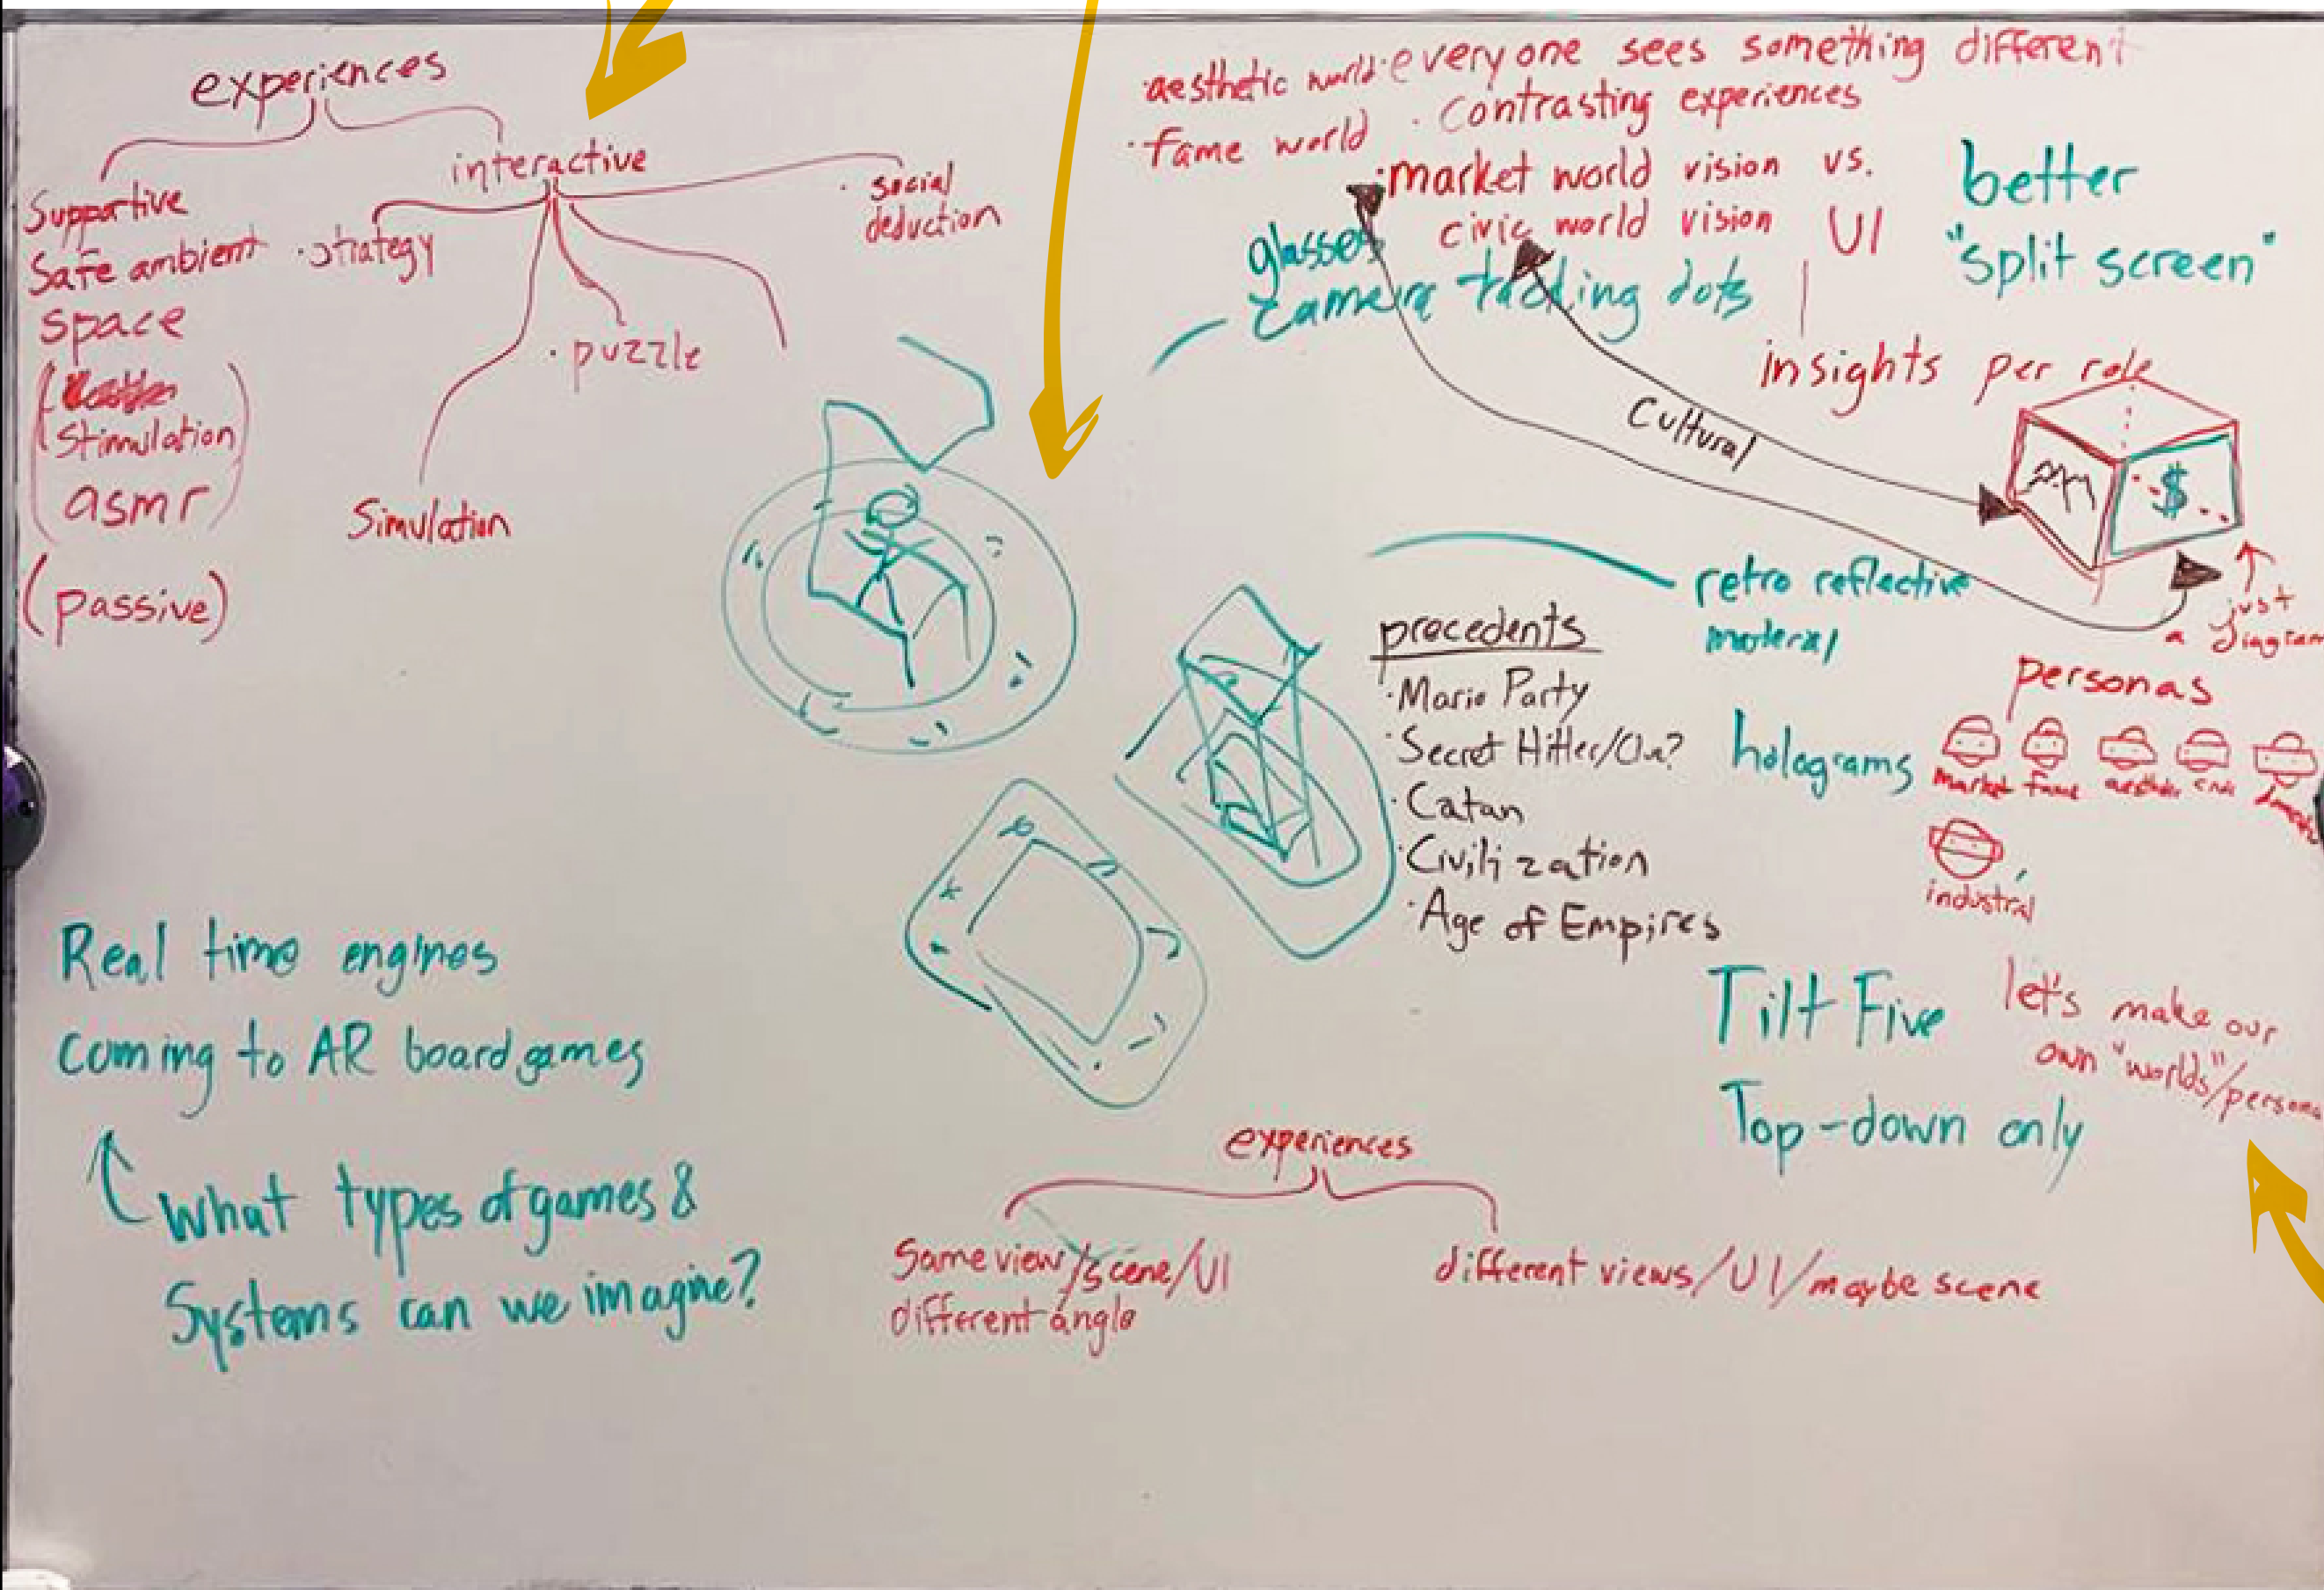 experiences
Supportive
Safe ambient
space
Stimulation
asmr
(passive)
interactive
· strategy
· puzzle
Simulation
· social
deduction
· aesthetic world
· fame world
· everyone sees something different
· contrasting experiences
· market world vision vs.
civic world vision
UI
insights per role
better
"split screen"
glasses
camera tracking dots
Cultural
$
just
a diagram
retro reflective
material
precedents
· Mario Party
· Secret Hitler/Clue?
· Catan
· Civilization
· Age of Empires
holograms
personas
market fame aesthetic civic
industrial
Real time engines
coming to AR board games
What types of games &
Systems can we imagine?
Tilt Five
Top-down only
let's make our
own "worlds"/persona
experiences
Same view/scene/UI
different angle
different views/UI/maybe scene